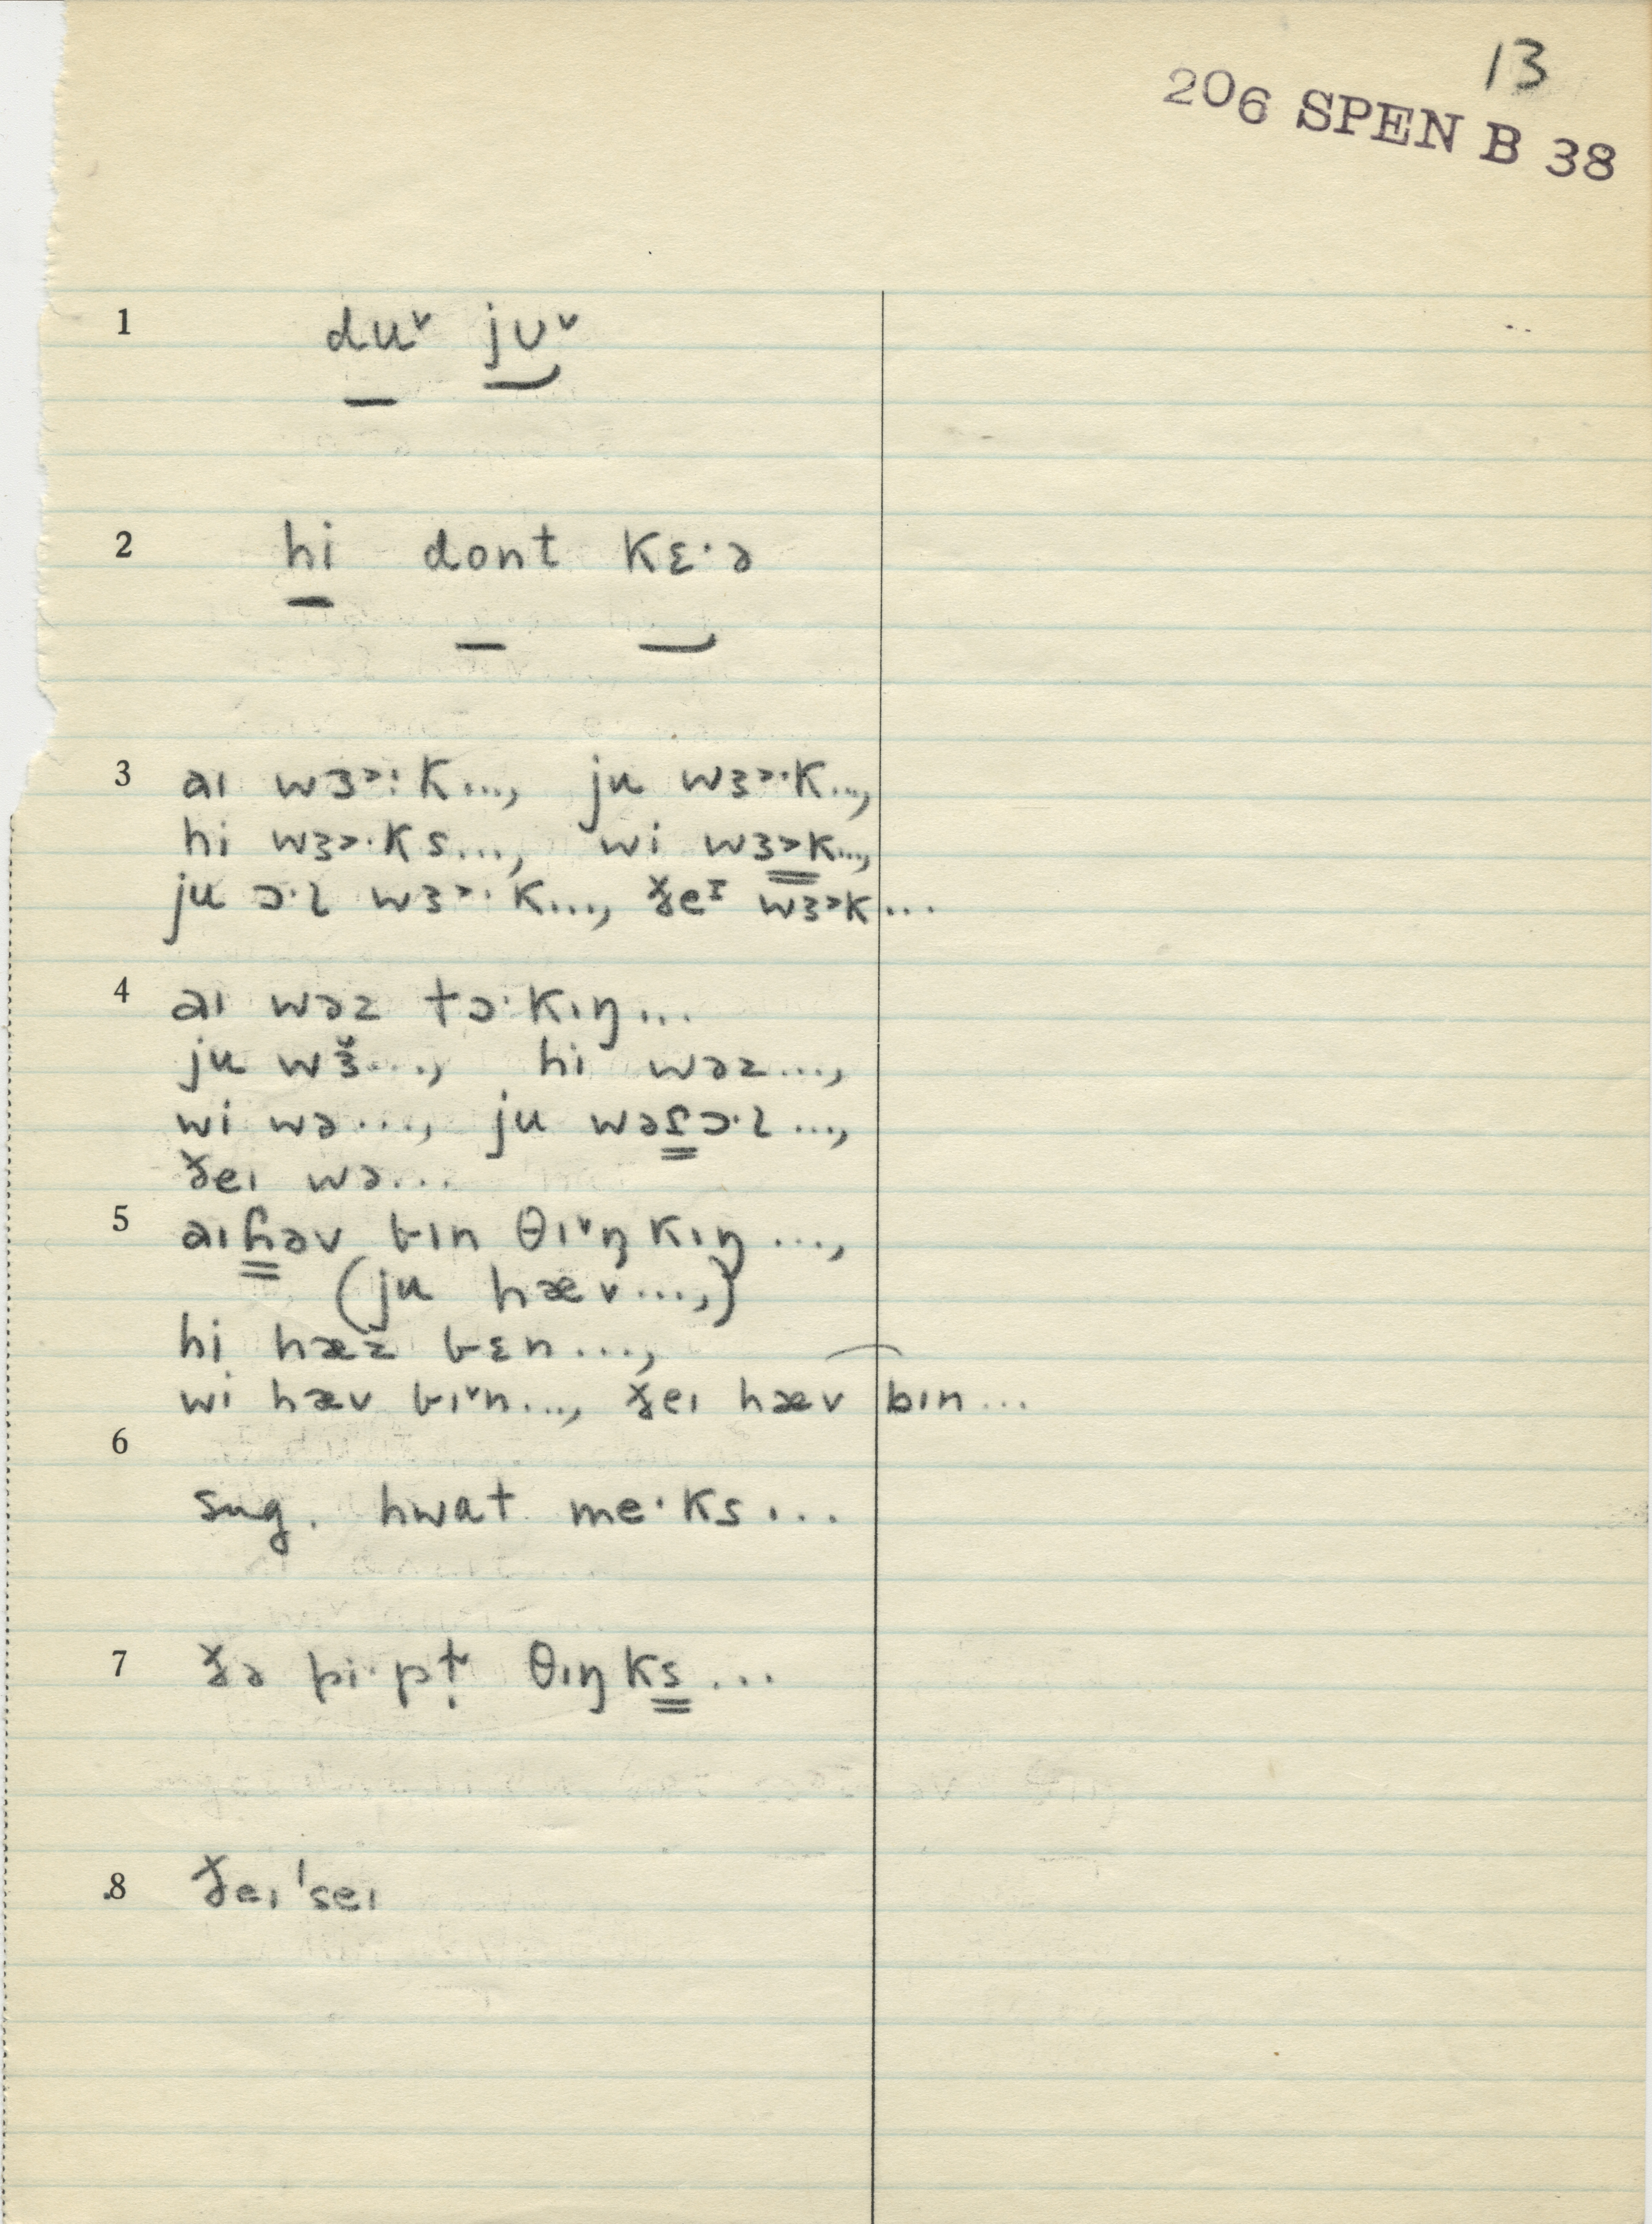 13
206 SPEN B 38
1 duˇ jʊˇ
2 hi dont kɛ·ə
3 aɪ wɜ˃:k..., ju wɜ˃·k...,
hi wɜ˃·ks..., wi wɜ˃k...,
ju ɔ·l wɜ˃·k..., ðeᴵ wɜ˃k...
4 aɪ wəz tɔ·kɪŋ...
ju wɜ̌..., hi wəz...,
wi wə..., ju wəɾɔ·l...,
ðeɪ wə...
5 aɪɦəv bɪn θɪˇŋkɪŋ...,
(ju hæv...,)
hi hæz bɛn...,
wi hæv bɪˇn..., ðeɪ hæv bɪn...
6
sug. hwat me·ks...
7 ðə pi·pḷ θɪŋks...
8 ðeɪ 'seɪ